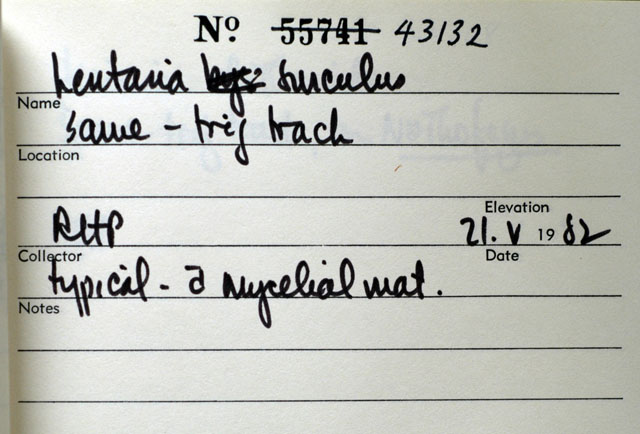 Nº 55741 43132
Lentaria surculus
Name
same - trig track
Location
Elevation
RHP 21. V 1982
Collector Date
typical - a mycelial mat.
Notes